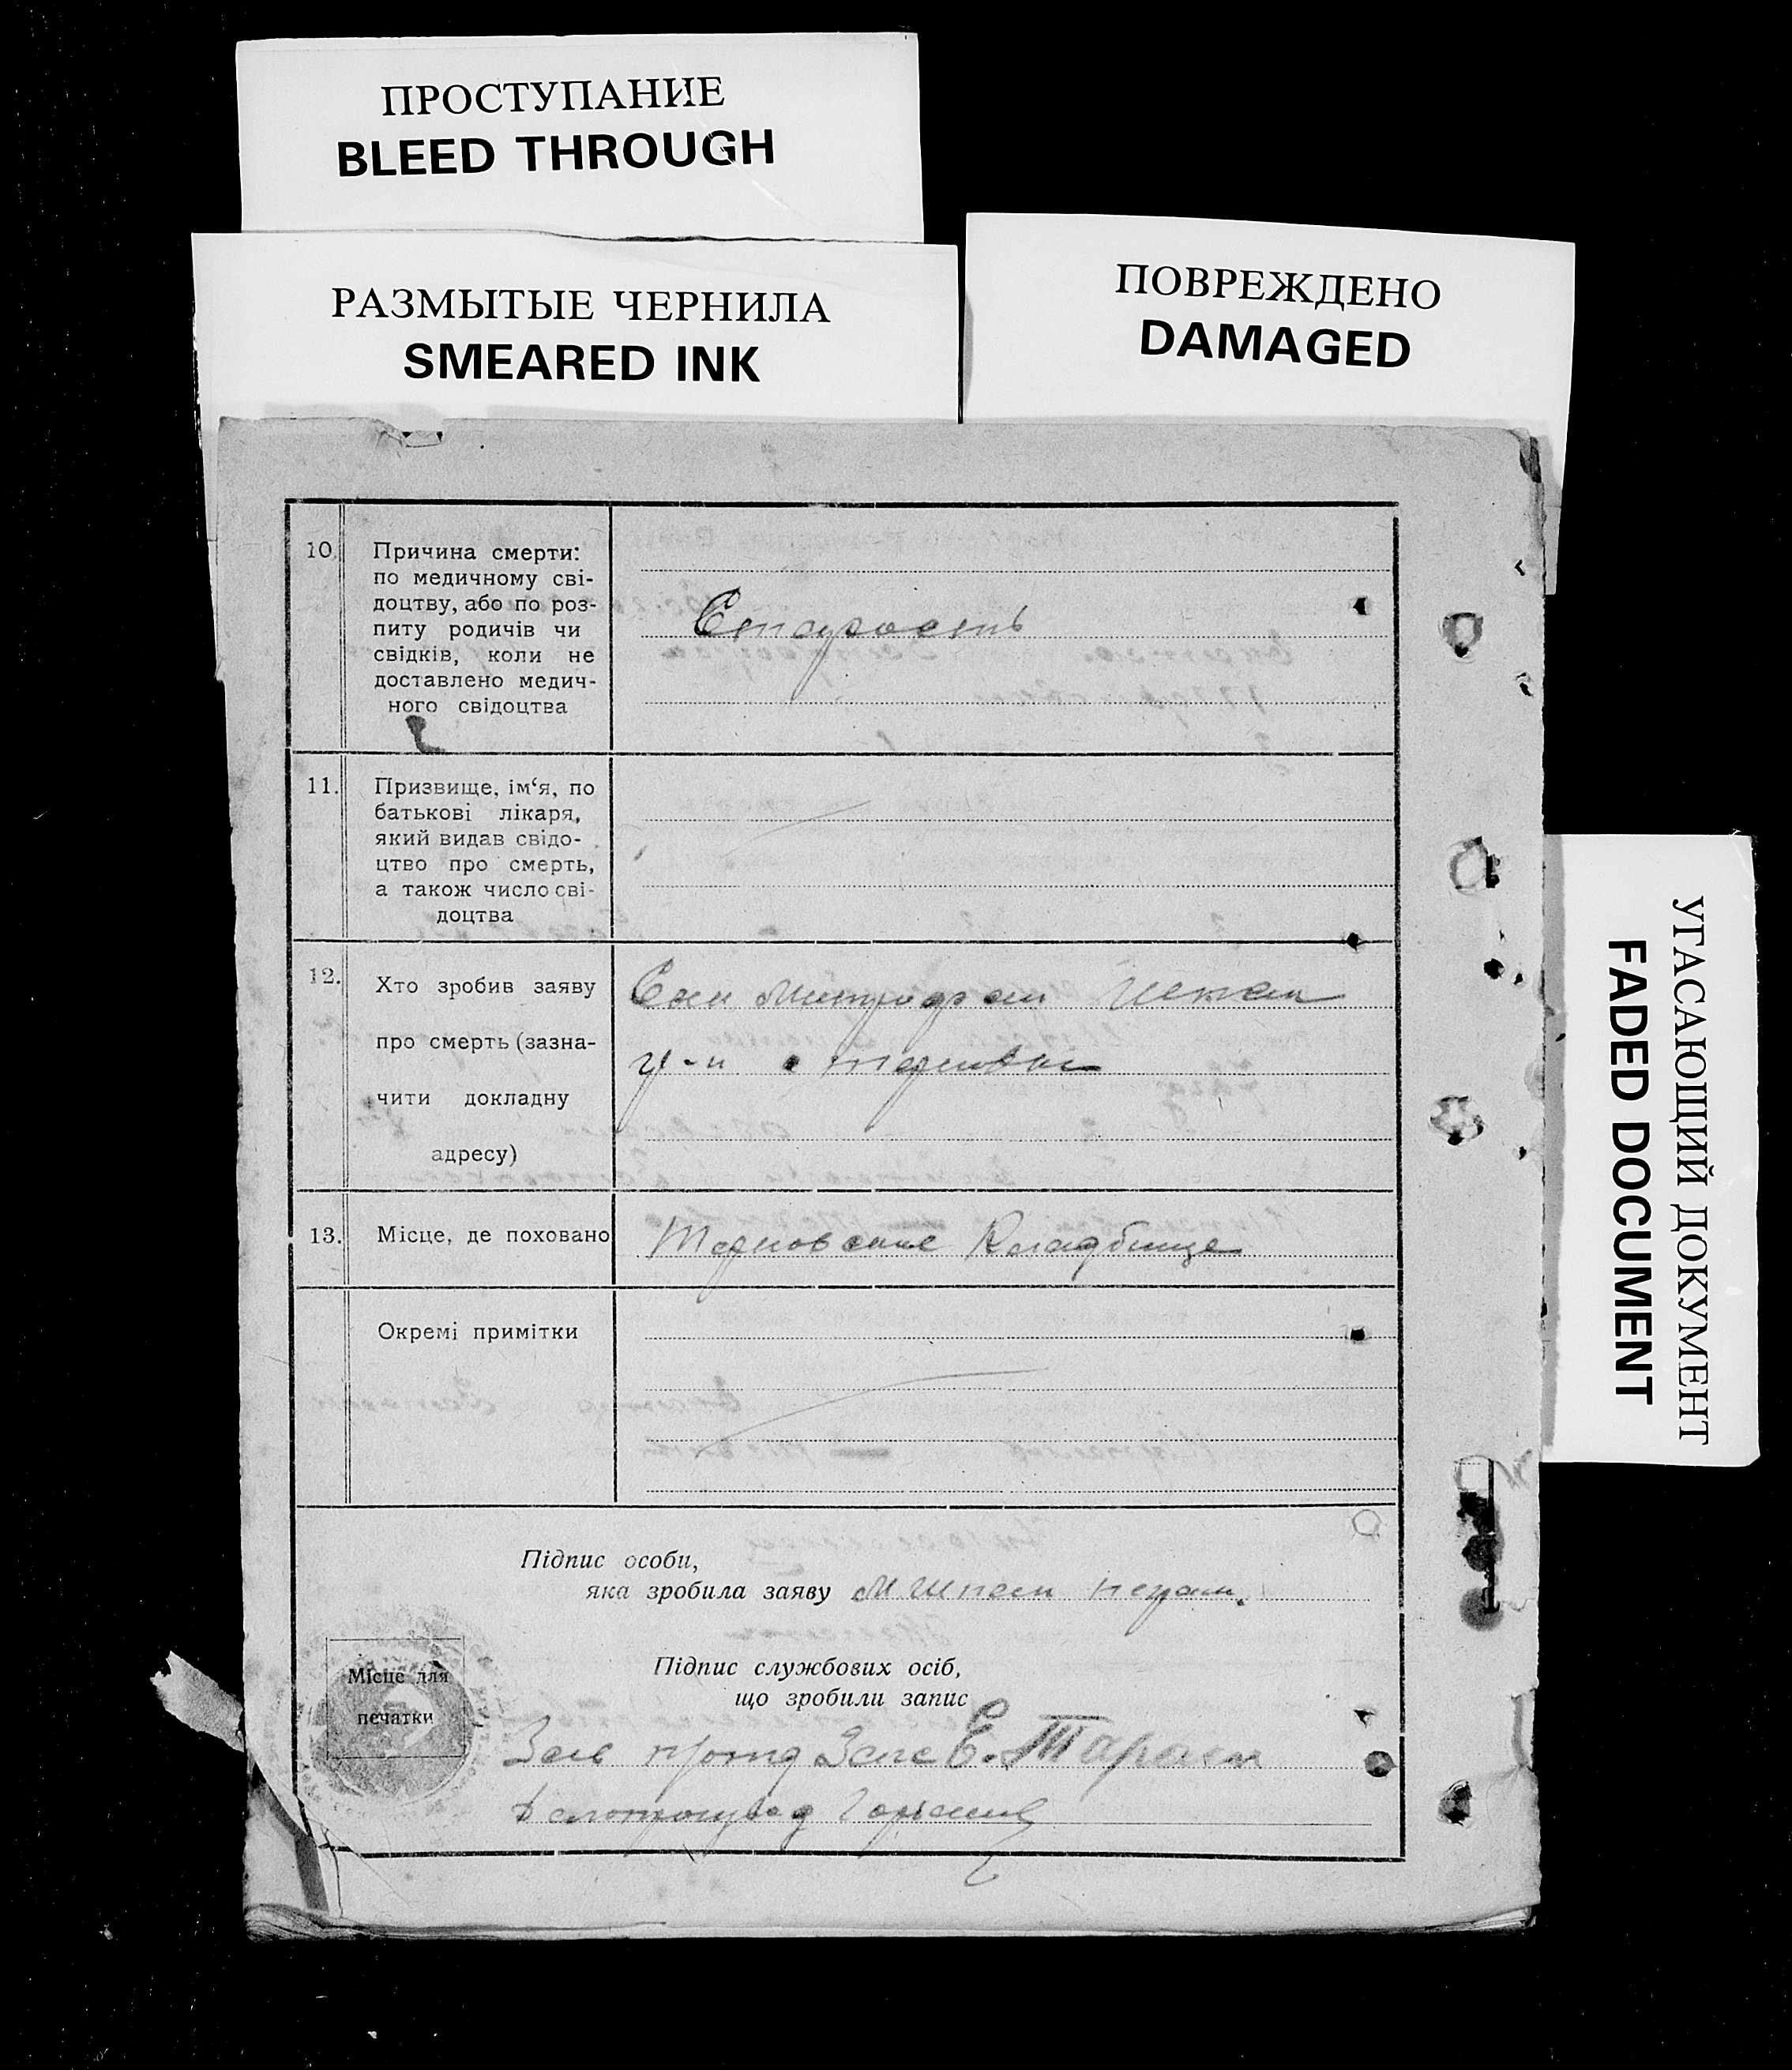 ПРОСТУПАНИЕ
BLEED THROUGH
РАЗМЫТЫЕ ЧЕРНИЛА
SMEARED INK
ПОВРЕЖДЕНО
DAMAGED
УГАСАЮЩИЙ ДОКУМЕНТ
FADED DOCUMENT
10. Причина смерти:
по медичному сві-
доцтву, або по роз-
питу родичів чи
свідків, коли не
доставлено медич-
ного свідоцтва
Старость
11. Призвище, ім‘я, по
батькові лікаря,
який видав свідо-
цтво про смерть,
а також число сві-
доцтва
12. Хто зробив заяву
про смерть (зазна-
чити докладну
адресу)
Сын Митрофан
13. Місце, де поховано
Терновские Кладбище
Окремі примітки
Підпис особи,
яка зробила заяву
Місце для
печатки
Підпис службових осіб,
що зробили запис
Зав Загс Е. Таран